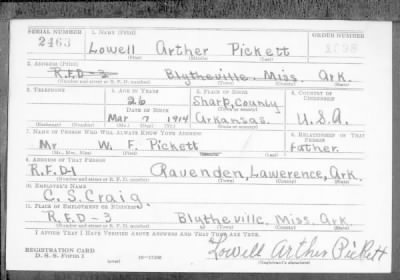 SERIAL NUMBER 1. NAME (Print) ORDER NUMBER
2463 Lowell Arther Pickett
(First) (Middle) (Last)
2. ADDRESS (Print)
R.F.D-3 Blytheville. Miss. Ark.
(Number and street or R. F. D. number) (Town) (County) (State)
3. TELEPHONE 4. AGE IN YEARS 5. PLACE OF BIRTH 6. COUNTRY OF CITIZENSHIP
26 Sharp, County
DATE OF BIRTH (Town or county)
Mar 7 1914 Arkansas. U.S.A.
(Exchange) (Number) (Mo.) (Day) (Yr.) (State or country)
7. NAME OF PERSON WHO WILL ALWAYS KNOW YOUR ADDRESS 8. RELATIONSHIP OF THAT PERSON
Mr. W. F. Pickett father.
(Mr., Mrs., Miss) (First) (Middle) (Last)
9. ADDRESS OF THAT PERSON
R.F.D-1 Ravenden, Lawerence, Ark.
(Number and street or R. F. D. number) (Town) (County) (State)
10. EMPLOYER'S NAME
C. S. Craig.
11. PLACE OF EMPLOYMENT OR BUSINESS
R.F.D-3 Blytheville, Miss. Ark.
(Number and street or R. F. D. number) (Town) (County) (State)
I AFFIRM THAT I HAVE VERIFIED ABOVE ANSWERS AND THAT THEY ARE TRUE.
REGISTRATION CARD
D. S. S. Form 1 Lowell Arther Pickett
(over) (Registrant's signature)